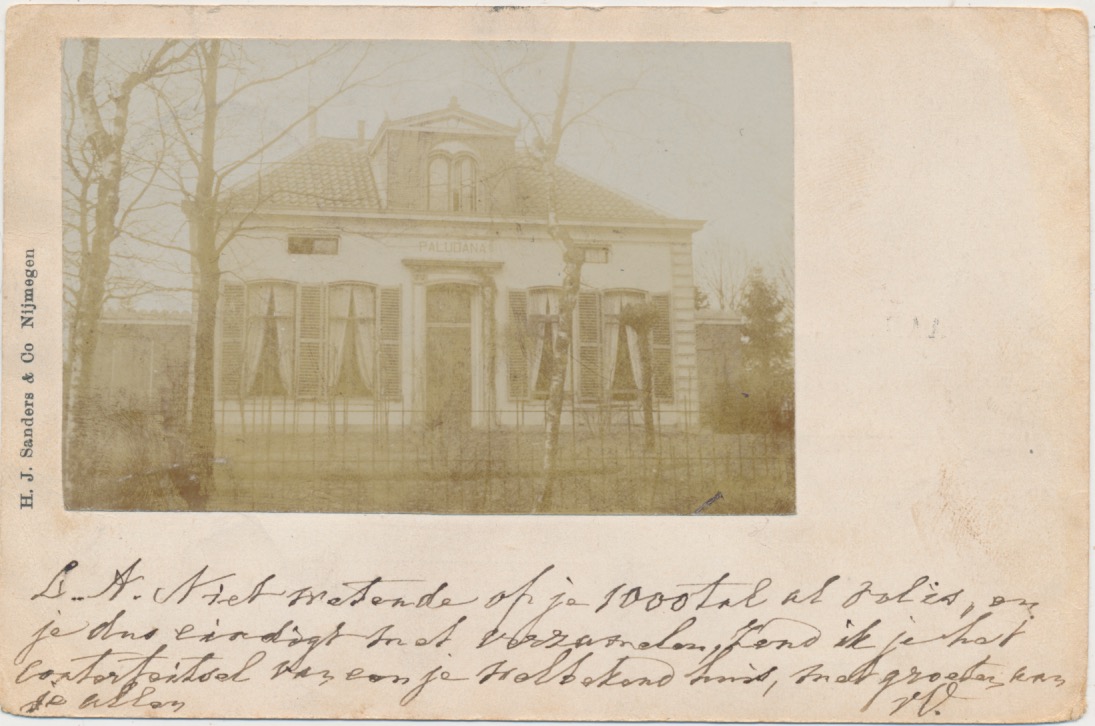 PALUDANA
H. J. Sanders & Co Nijmegen
L. A. Niet wetende of je 1000tal al vol is, en
je dus eindigt met verzamelen, zend ik je het
conterfeitsel van een je welbekend huis, met groeten aan
je allen
W.